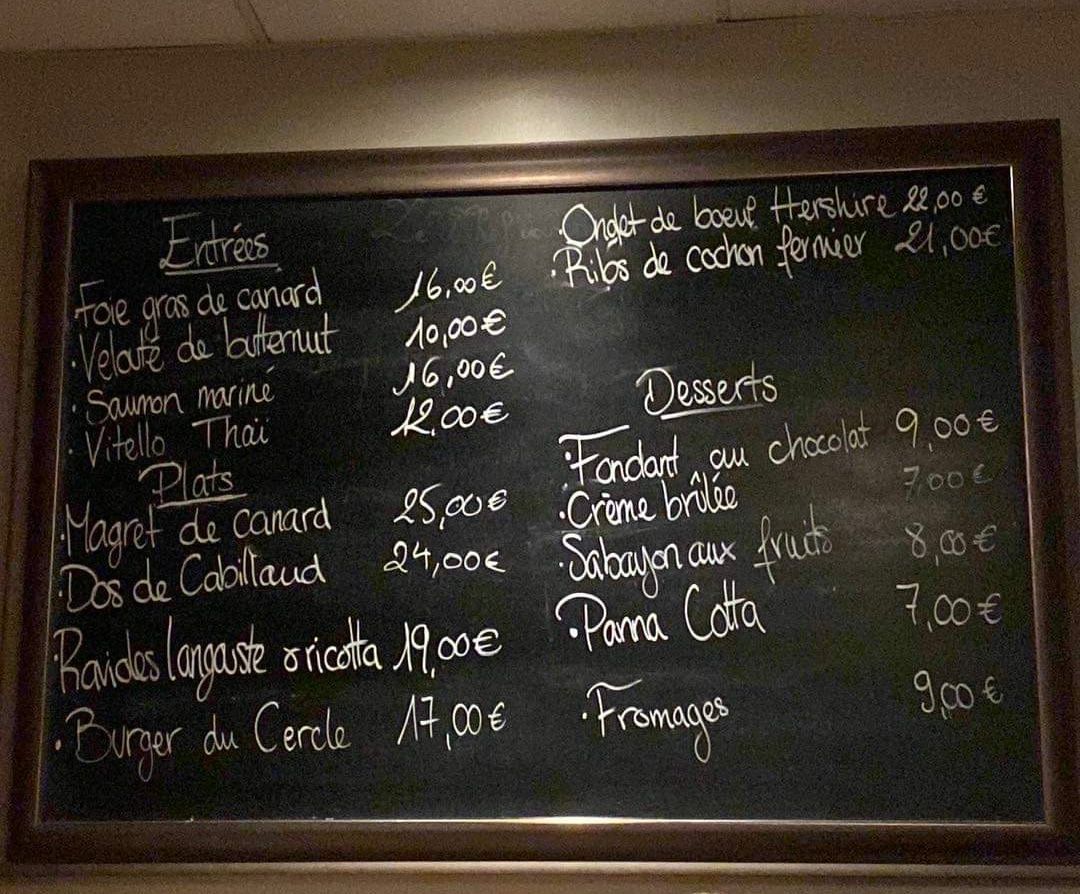 Entrées
Foie gras de canard 16,00€
·Velouté de butternut 10,00€
·Saumon mariné 16,00€
·Vitello Thaï 12,00€
Plats
·Magret de canard 25,00€
·Dos de Cabillaud 24,00€
·Ravioles langouste ricotta 19,00€
·Burger du Cercle 17,00€
·Onglet de boeuf Hershire 22,00€
·Ribs de cochon fermier 21,00€
Desserts
·Fondant au chocolat 9,00€
·Crème brûlée 7,00€
·Sabayon aux fruits 8,00€
·Panna Cotta 7,00€
·Fromages 9,00€